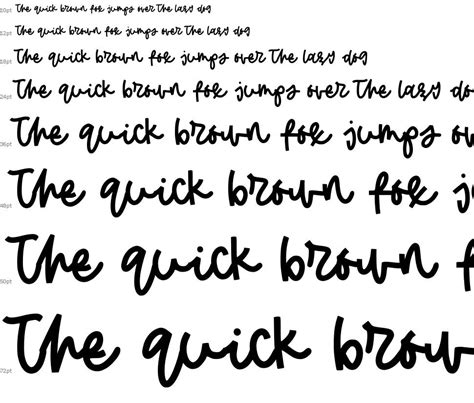 10pt The quick brown fox jumps over The lazy dog
12pt The quick brown fox jumps over The lazy dog
18pt The quick brown fox jumps over The lazy dog
24pt The quick brown fox jumps over The lazy do
36pt The quick brown fox jumps ov
48pt The quick brown fox j
60pt The quick brown f
72pt The quick brown